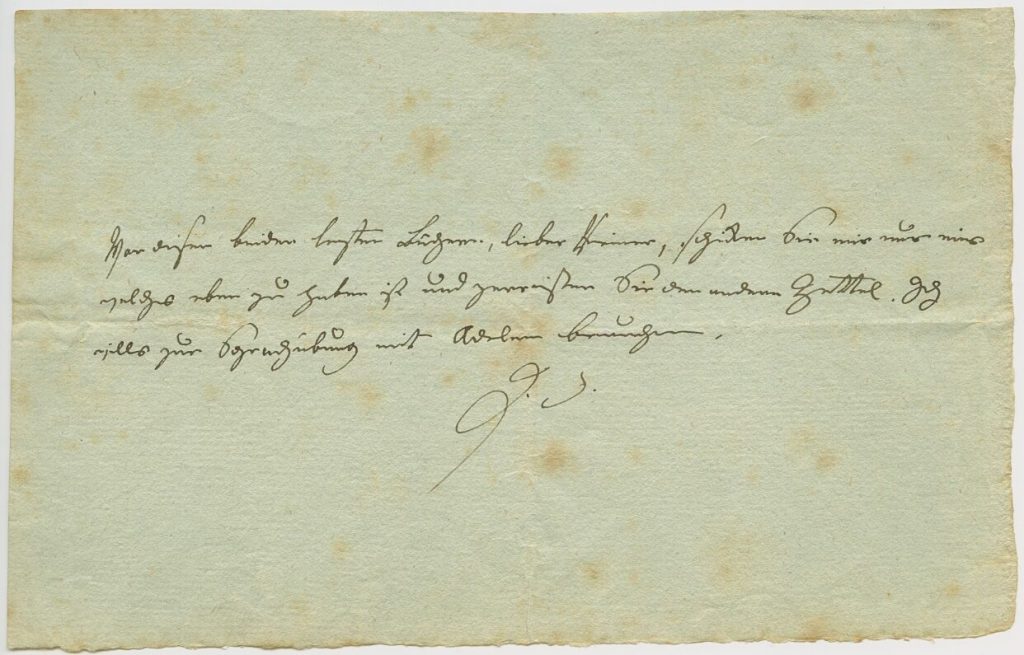 Von diesen beiden letzten Büchern, lieber Riemer, schicken Sie mir nur eins
welches eben zu haben ist und zerreißen Sie den andern Zettel. Ich
wills zur Sprachübung mit Adelen brauchen.
J. S.